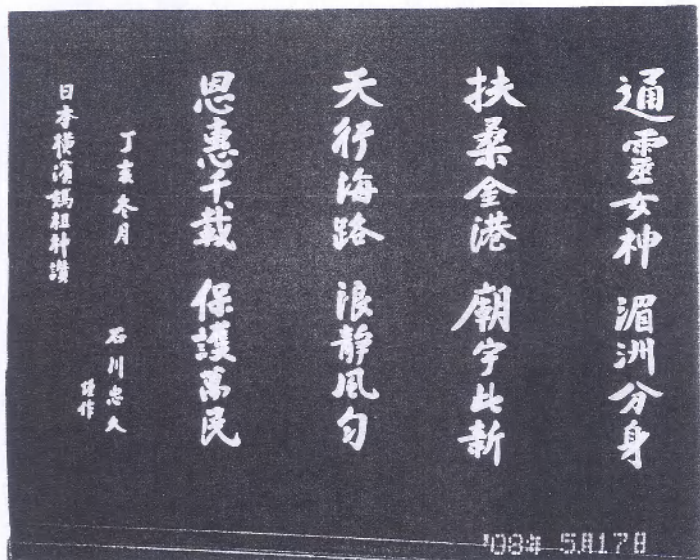 通靈女神 湄洲分身
扶桑金港 廟宇此新
天行海路 浪静風匀
恩惠千載 保護萬民
丁亥冬月 石川忠久
謹作
日本橫濱媽祖神讚
'08年 5月17日